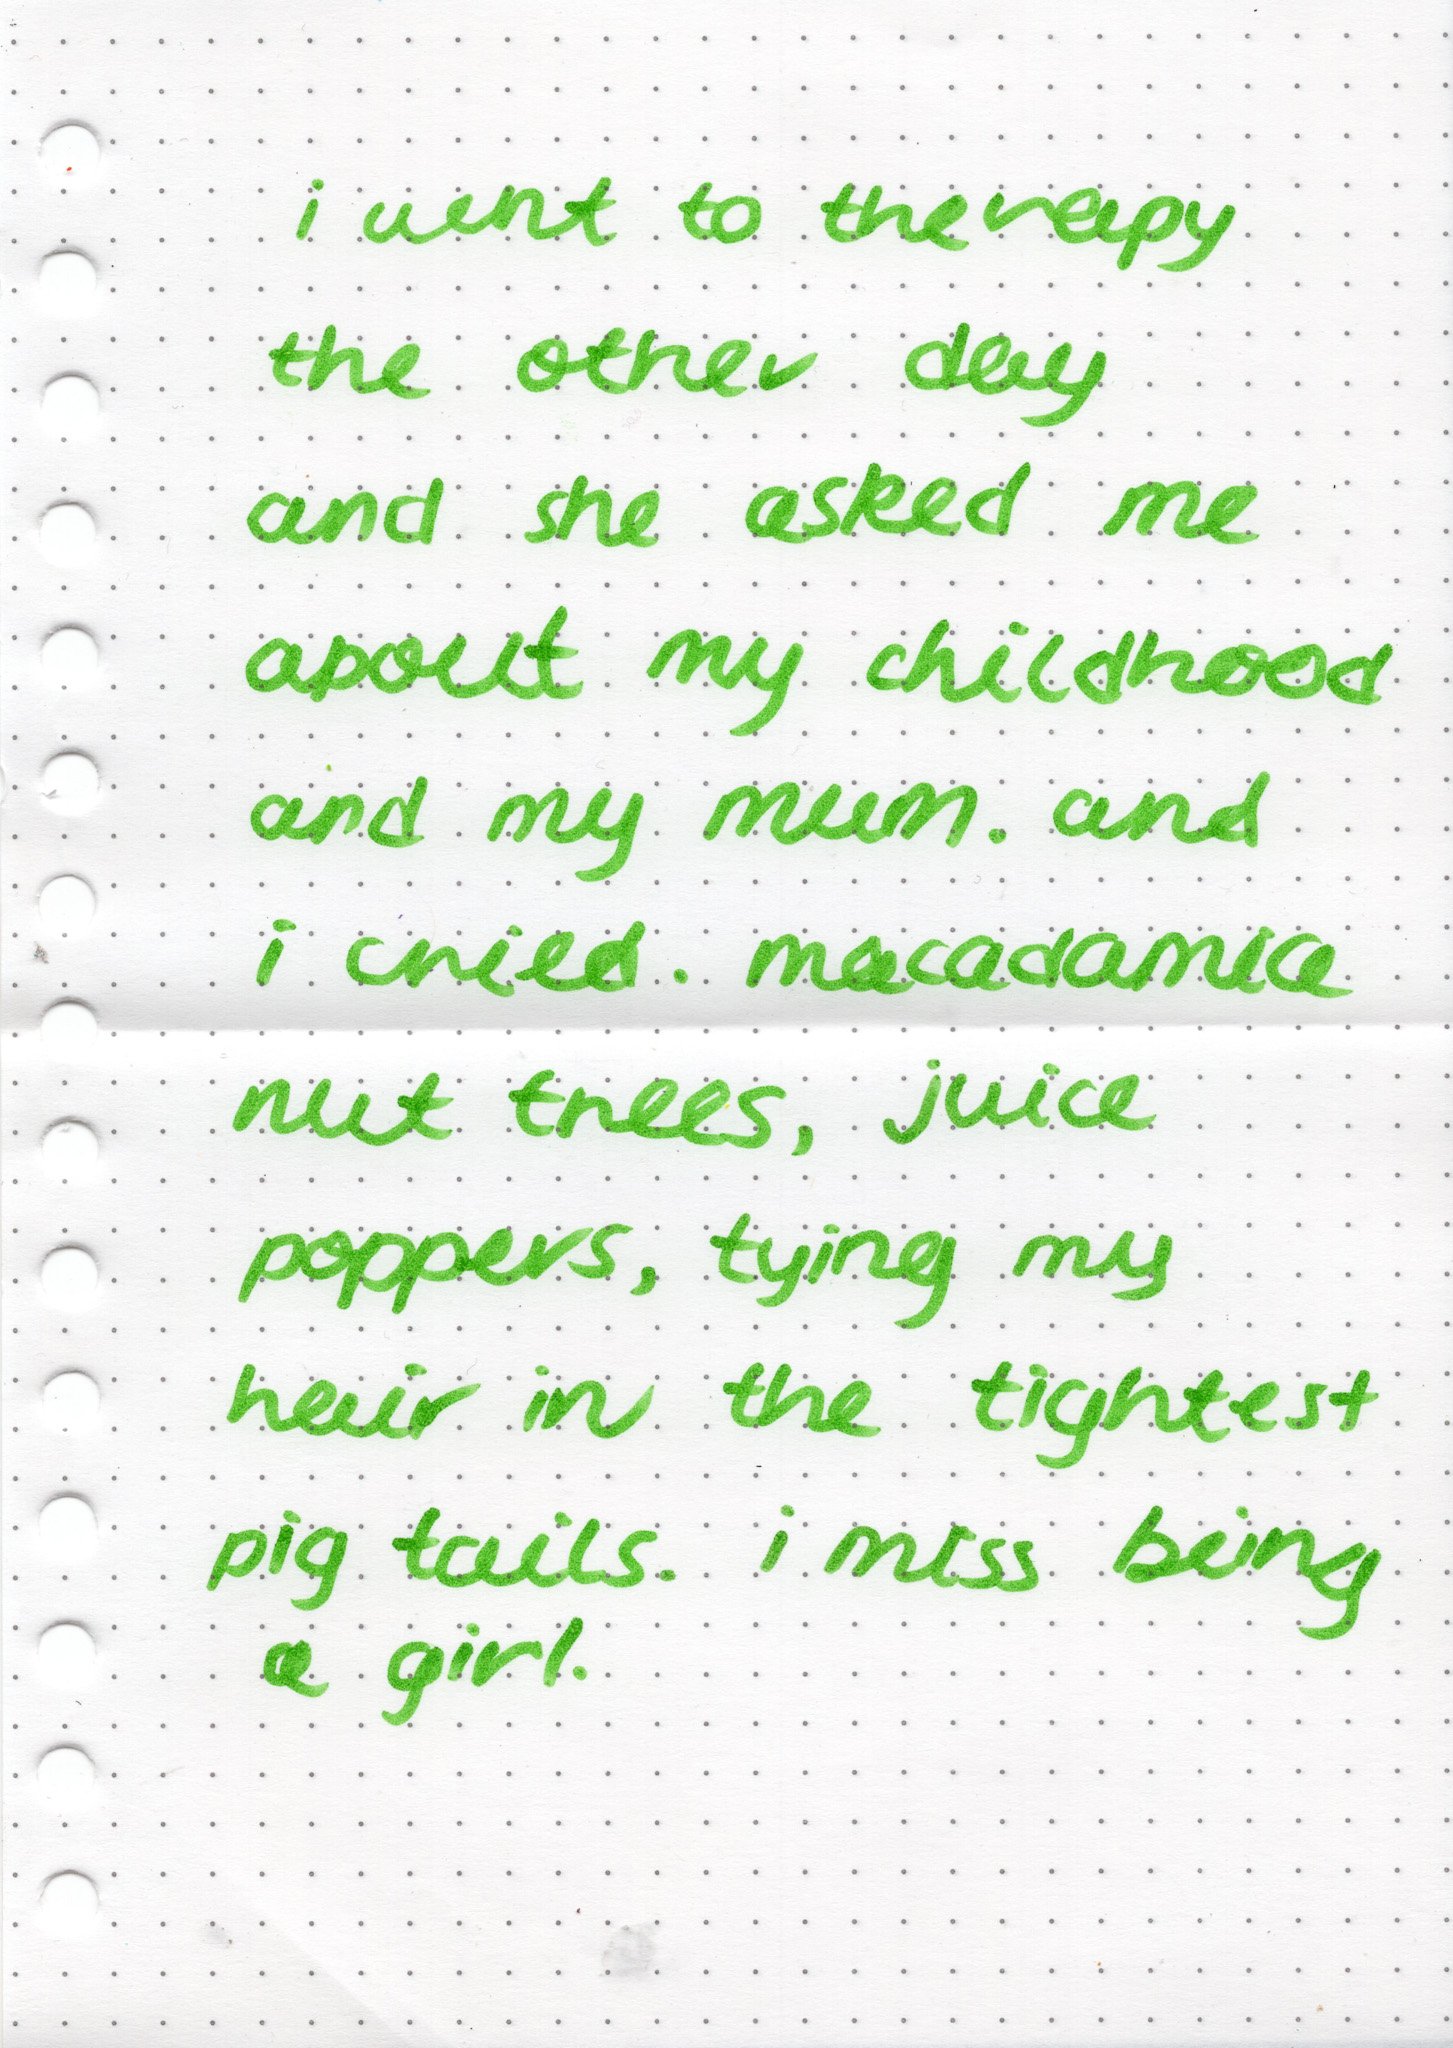 i went to therapy
the other day
and she asked me
about my childhood
and my mum. and
i cried. macadamia
nut trees, juice
poppers, tying my
hair in the tightest
pig tails. i miss being
a girl.